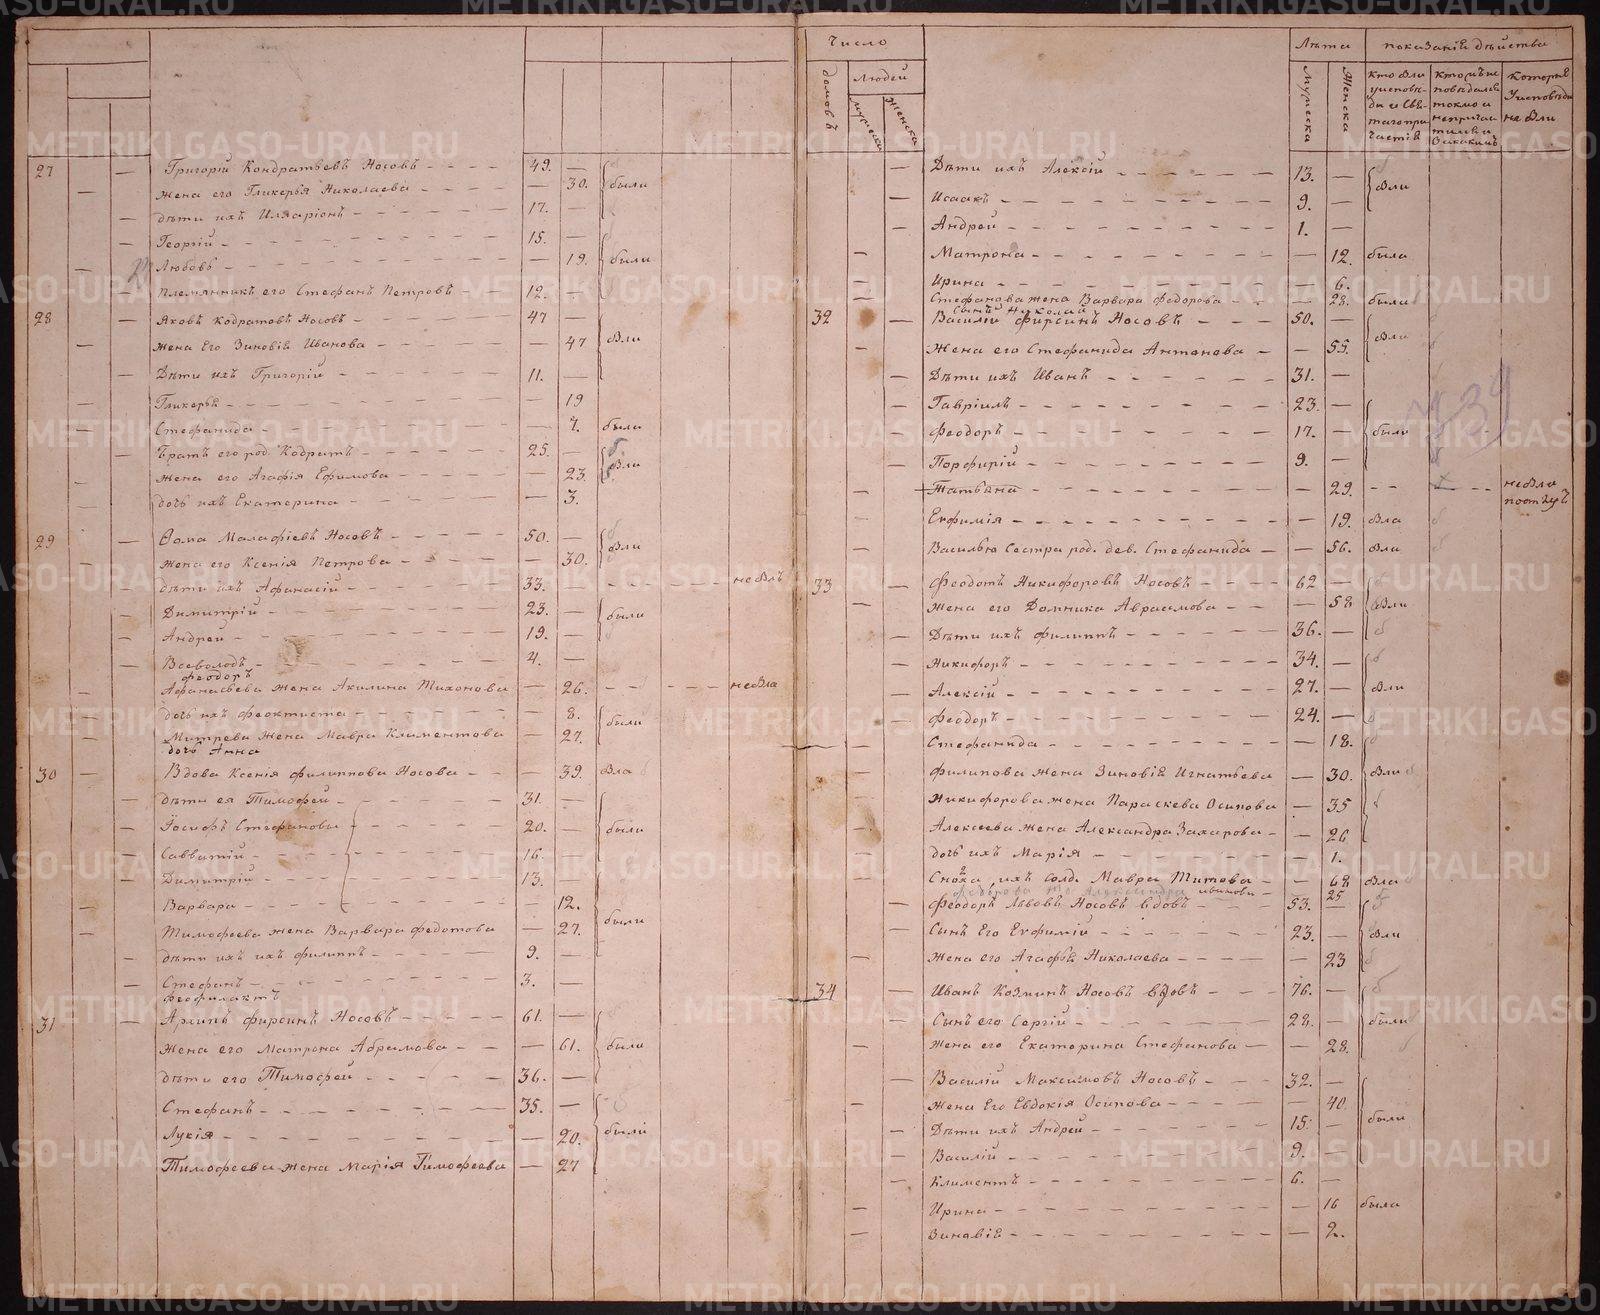 27 Григорій Кондратьевъ Носовъ 49.
жена его Гликерья Николаева 30. были
дѣти ихъ Илларіонъ 17.
Георгій 15.
Любовь 19. были
племянникъ его Стефанъ Петровъ 12.
28 Яковъ Кодратовъ Носовъ 47
жена Его Зиновія Иванова 47 бли
Дѣти ихъ Григорій 11.
Гликерья 19
Стефанида 7. были
Братъ его род. Кодратъ 25.
жена его Агафія Ефимова 23. бли
дочь ихъ Екатерина 3.
29 Ѳома Малафіевъ Носовъ 50.
жена его Ксенія Петрова 30. бли
дѣти ихъ Афанасій 33. не блъ
Димитрій 23. были
Андрей 19.
Всеволодъ 4.
феодоръ
Афанасьева жена Акилина Тихонова 26. не бла
дочь ихъ феоктиста 8. были
Митрева жена Мавра Климентова 27.
дочь Анна
30 Вдова Ксенія филиппова Носова 39. бла
дѣти ея Тимофей 31.
Іосифъ Стефановы 20. были
Савватій 16.
Димитрій 13.
Варвара 12.
Тимофеева жена Варвара федотова 27. были
дѣти ихъ ихъ филиппъ 9.
Стефанъ 3.
феофилактъ
31 Архипъ фирсинъ Носовъ 61.
жена его Матрона Абрамова 61. были
дѣти его Тимофей 36.
Стефанъ 35.
Лукія 20. были
Тимофеева жена Марія Тимофеева 27
Число
домовъ
людей
мужеска
женска
Лѣта
мужеска
Женска
показаніе дѣиства
кто бли
исповѣ-
ди и Свя-
таго при-
частія
Которыя
Исповѣди
не бли
Дѣти ихъ Алексій 13. бли
Исаакъ 9.
Андрей 1.
Матрона 12. была
Ирина 6.
Стефанова жена Варвара федорова 28. были
сынъ Николай
32 Василій фирсинъ Носовъ 50. бли
жена его Стефанида Антонова 55.
Дѣти ихъ Иванъ 31.
Гавріилъ 23.
феодоръ 17. были
Порфирій 9.
Татьяна 29. не бли
Евфимія 19. бла
Василью Сестра род. дев. Стефанида 56. бли
33 феодотъ Никифоровъ Носовъ 62
жена его Домника Аврамова 58 бли
Дѣти ихъ филиппъ 36.
Никифоръ 34.
Алексій 27. бли
феодоръ 24.
Стефанида 18.
филипова жена Зиновія Игнатьева 30. бли
Никифорова жена Параскева Осипова 35
Алексеева жена Александра Захарова 26
дочь ихъ Марія 1.
Сноха ихъ солд. Мавра Титова 68 бла
25
феодоръ Львовъ Носовъ вдовъ 53.
Сынъ Его Евфимій 23. бли
жена его Агафья Николаева 23
34 Иванъ Козминъ Носовъ вдовъ 76.
Сынъ его Сергій 28. были
жена его Екатерина Стефанова 28.
Василій Максимовъ Носовъ 32.
жена Его Евдокія Осипова 40
Дѣти ихъ Андрей 15. были
Василій 9.
Климентъ 6.
Ирина 16 была
Зиновія 2.
739
METRIKI.GASO-URAL.RU